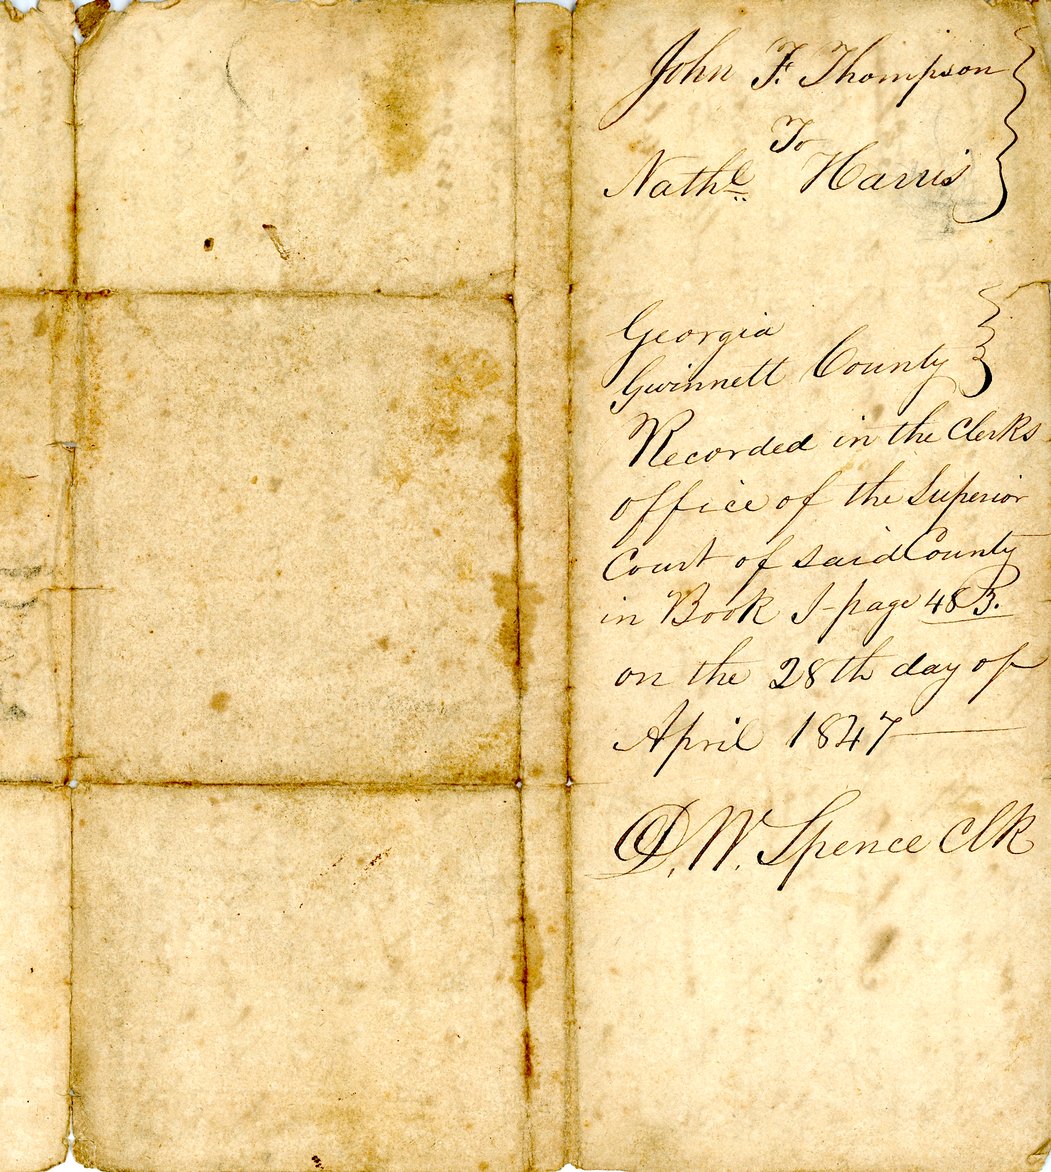 John F. Thompson
To
Nathl. Harris
Georgia
Gwinnett County
Recorded in the Clerks
office of the Superior
Court of said County
in Book I - page 483.
on the 28th day of
April 1847
D. W. Spence Clk